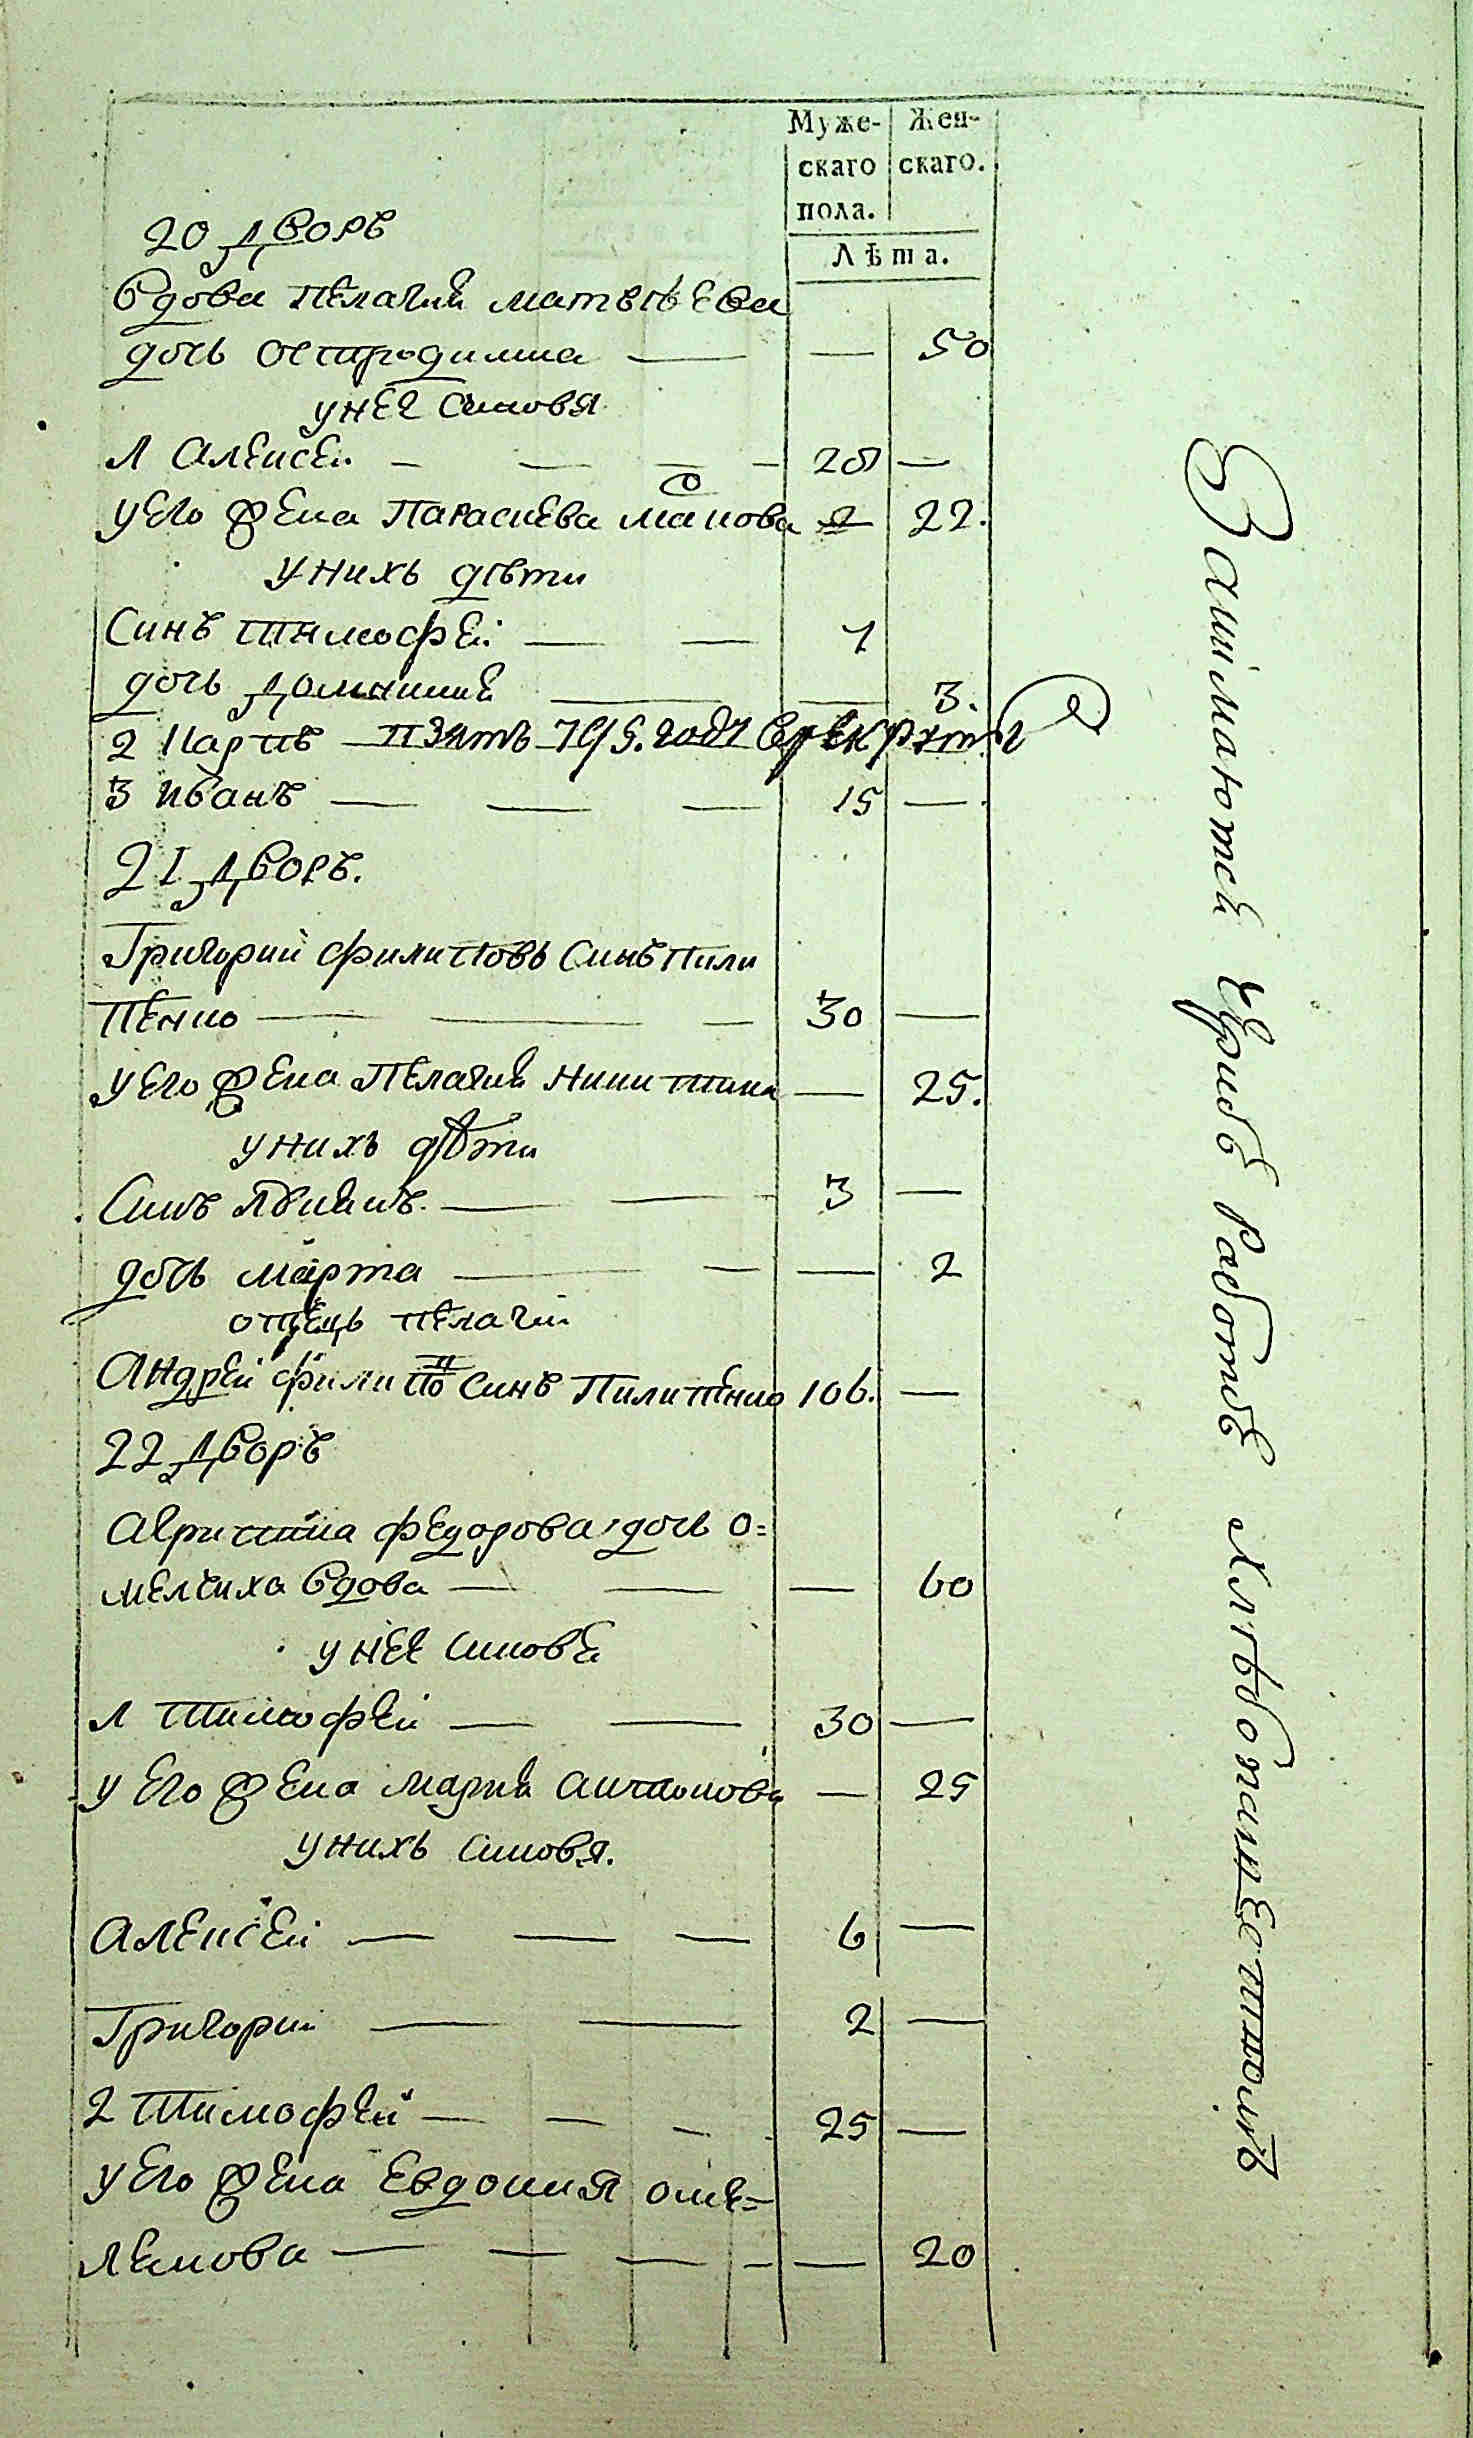 Муже- Жен-
скаго скаго.
пола.
Лѣта.
20 дворъ
Вдова Пелагия Матвѣева
дочь Остродимка — — 50
у нее синовя
1 Алексей — — — 28 —
У его жена Параскева — 22.
у нихъ дѣти
Синъ Тимофей — — 1
дочь Домникия — — 3.
2 Карпъ взятъ годy в рекруты
3 Иванъ — — — 15 —
21 дворъ.
Григорий Филиповъ Синъ Пили
пенко — — — 30 —
у его жена Пелагия Никитина — 25.
у нихъ дѣти
Синъ — — 3 —
дочь Марта — — — 2
отецъ Пелагии
Андрей Филипо Синъ Пилипенко 106. —
22 дворъ
Агрипина Федорова дочь О=
мелчиха Вдова — — — 60
у нее Синовя
1 Тимофей — — 30 —
у его жена Мария Антонова — 25
у нихъ Синовя.
Алексей — — — 6 —
Григорий — — 2 —
2 Тимофей — — — 25 —
у его жена Евдокия Оме=
лянова — — — — — 20
Занимаются еврибѣ работѣ хлѣбопашественномъ